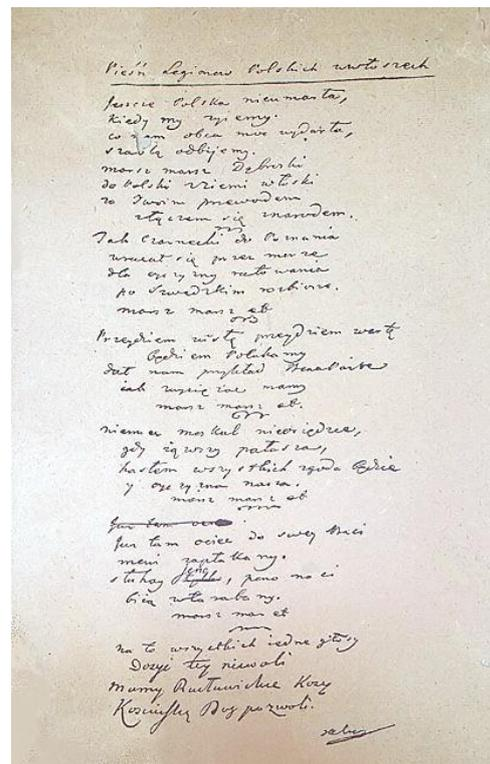 Pieśń Legionow Polskich wewłoszech
Jescze Polska nieumarła,
kiedy my zyiemy.
co nam obca moc wydarła,
szablą odbiiemy.
marsz marsz Dąbroski
do Polski z ziemi włoski
za Twoim przewodem
złączem się znarodem.
Jak Czarnecki do Poznania
wracał się przez morze
dla oyczyzny ratowania
po Szwedzkim rozbiorze.
marsz marsz et
Przeydziem wisłę przeydziem wartę
Będziem Polakamy
dał nam przykład Bonaparte
iak zwyciężac mamy
marsz marsz et.
niemiec moskal nieosiędzie,
gdy iąwszy pałasza,
hasłem wszystkich zgoda Będzie
y oyczyzna nasza.
marsz marsz et
Jus tam ociec do swey Basi
mowi zapłakany.
słuchay ieno, pono nasi
biią wtarabany.
marsz marsz et
na to wszystkich iedne głosy
Dosyć tey niewoli
mamy Racławickie Kosy
Kosciuszkę Bog pozwoli.